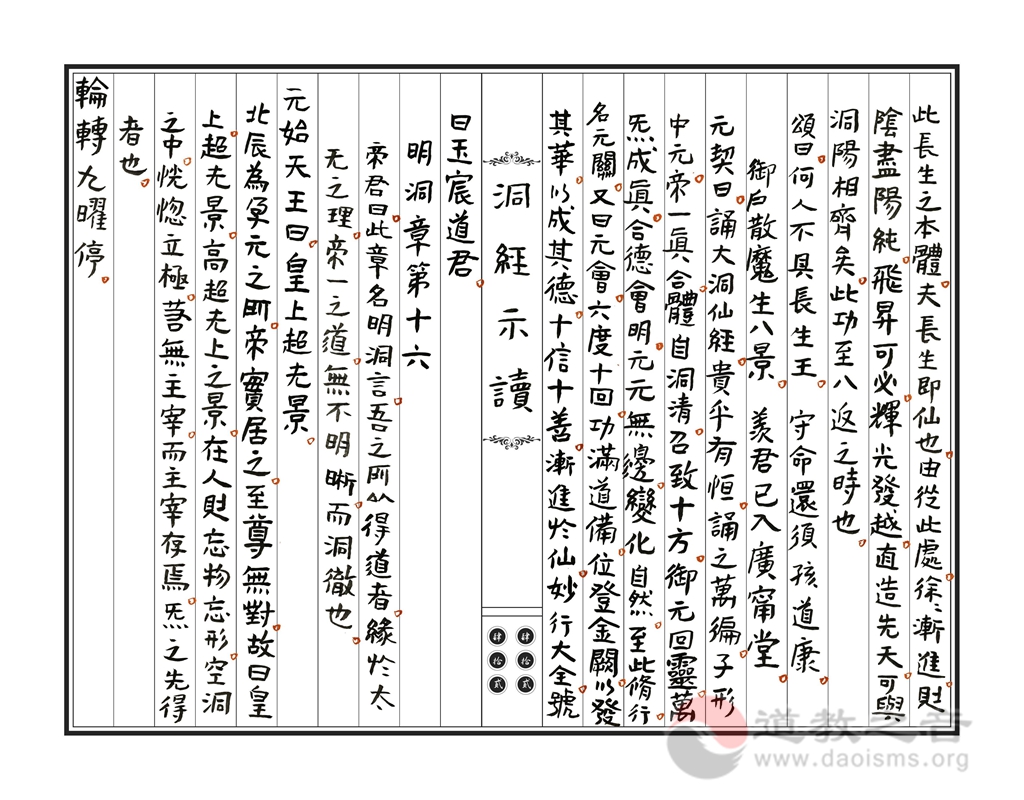 此長生之本體夫長生即仙也由從此處徐々漸進則
陰盡陽純飛昇可必輝光發越直造先天可與
洞陽相齊矣此功至八返之時也
頌曰何人不具長生王 守命還須孩道康
御戶散魔生八景 羨君已入廣甯堂
元契曰誦大洞仙經貴乎有恒誦之萬徧子形
中元帝一眞合體自洞清召致十方御元回靈萬
炁成眞合德會明元元無邊變化自然至此脩行
名元關又曰元會六度十回功滿道備位登金闕以發
其華以成其德十信十善漸進於仙妙行大全號
洞經示讀
肆拾貳
肆拾貳
曰玉宸道君
明洞章第十六
帝君曰此章名明洞言吾之所以得道者緣於太
无之理帝一之道無不明晰而洞徹也
元始天王曰皇上超尤景
北辰為孕元之所帝實居之至尊無對故曰皇
上超尤景高超尤上之景在人則忘物忘形空洞
之中恍惚立極若無主宰而主宰存焉炁之先得
者也
輪轉九曜停
道教之音
www.daoisms.org